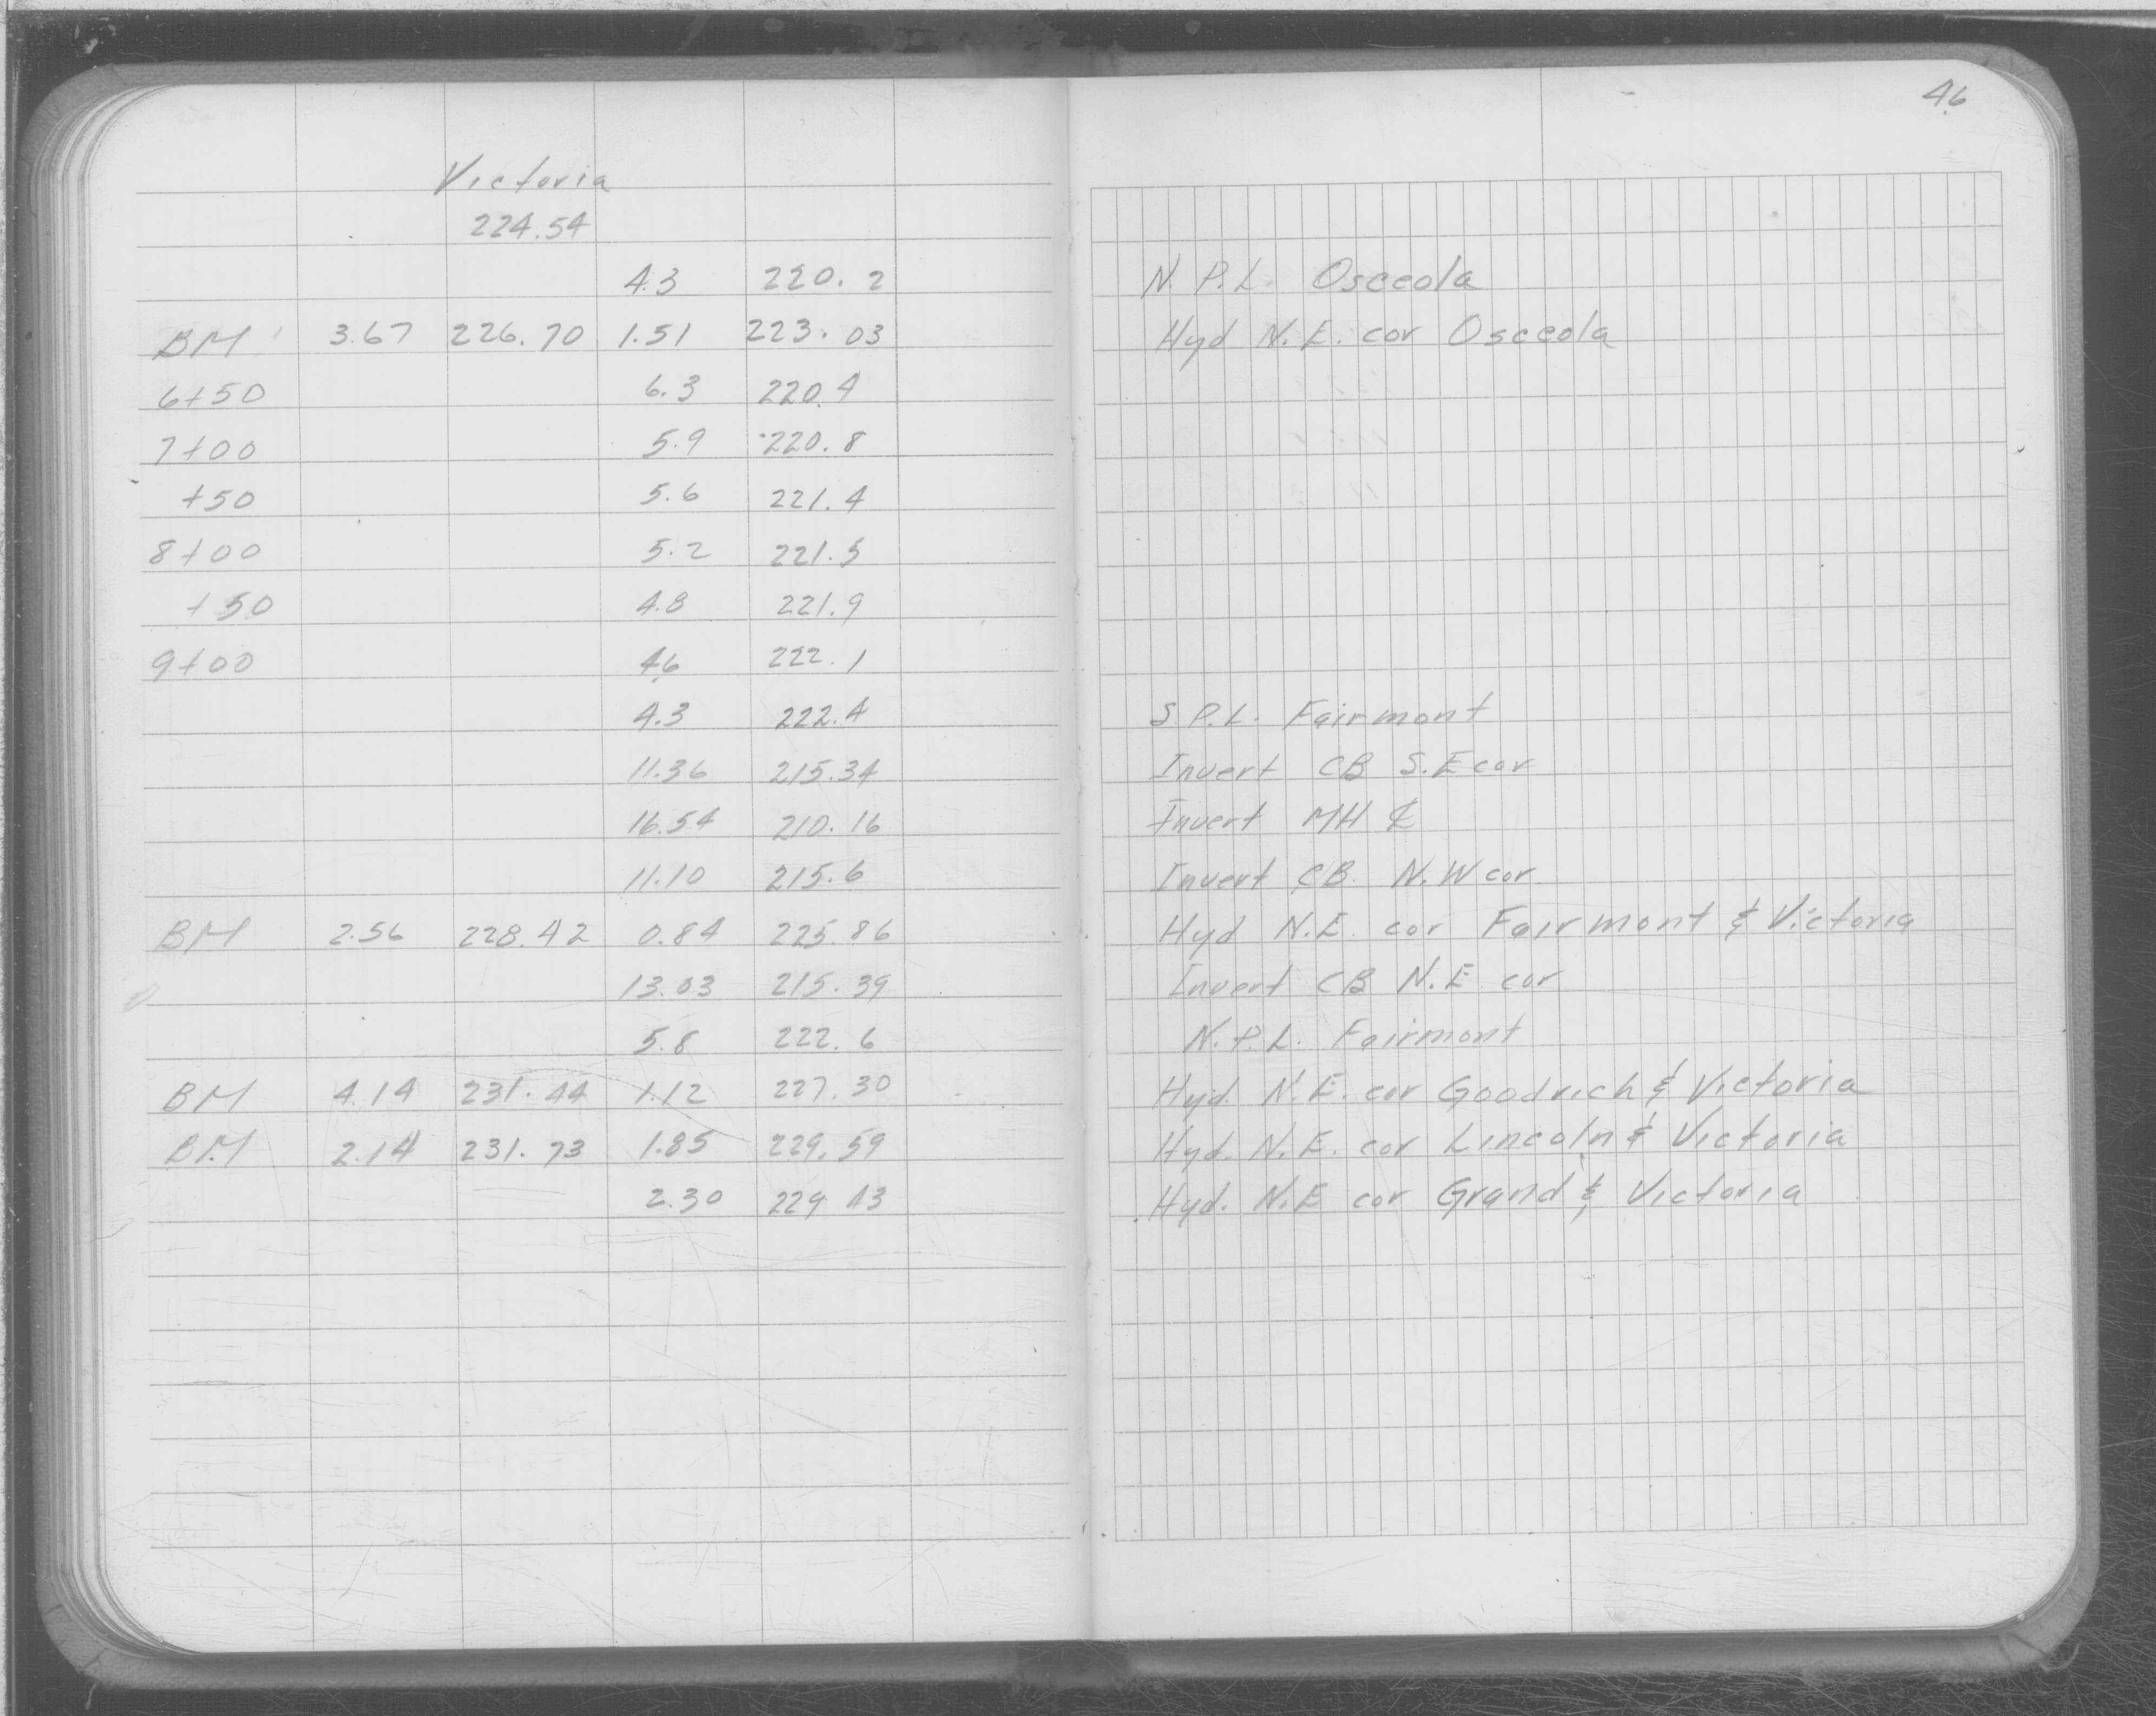 46
Victoria
224.54
4.3 220.2 N.P.L. Osceola
BM 3.67 226.70 1.51 223.03 Hyd N.E. cor Osceola
6+50 6.3 220.4
7+00 5.9 220.8
+50 5.6 221.4
8+00 5.2 221.5
+50 4.8 221.9
9+00 4.6 222.1
4.3 222.4 S.P.L. Fairmont
11.36 215.34 Invert CB S.E cor
16.54 210.16 Invert MH ℄
11.10 215.6 Invert CB N.W cor
BM 2.56 228.42 0.84 225.86 Hyd N.E. cor Fairmont & Victoria
13.03 215.39 Invert CB N.E. cor
5.8 222.6 N.P.L. Fairmont
BM 4.14 231.44 1.12 227.30 Hyd. N.E. cor Goodrich & Victoria
BM 2.14 231.73 1.85 229.59 Hyd. N.E. cor Lincoln & Victoria
2.30 229.43 Hyd. N.E cor Grand & Victoria